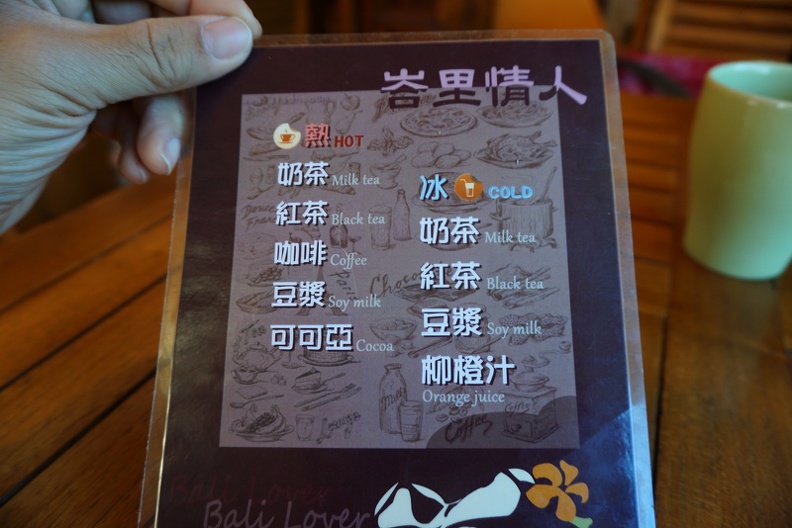 峇里情人
熱 HOT
奶茶 Milk tea
紅茶 Black tea
咖啡 Coffee
豆漿 Soy milk
可可亞 Cocoa
冰 COLD
奶茶 Milk tea
紅茶 Black tea
豆漿 Soy milk
柳橙汁
Orange juice
Bali Lover
Bali Lover